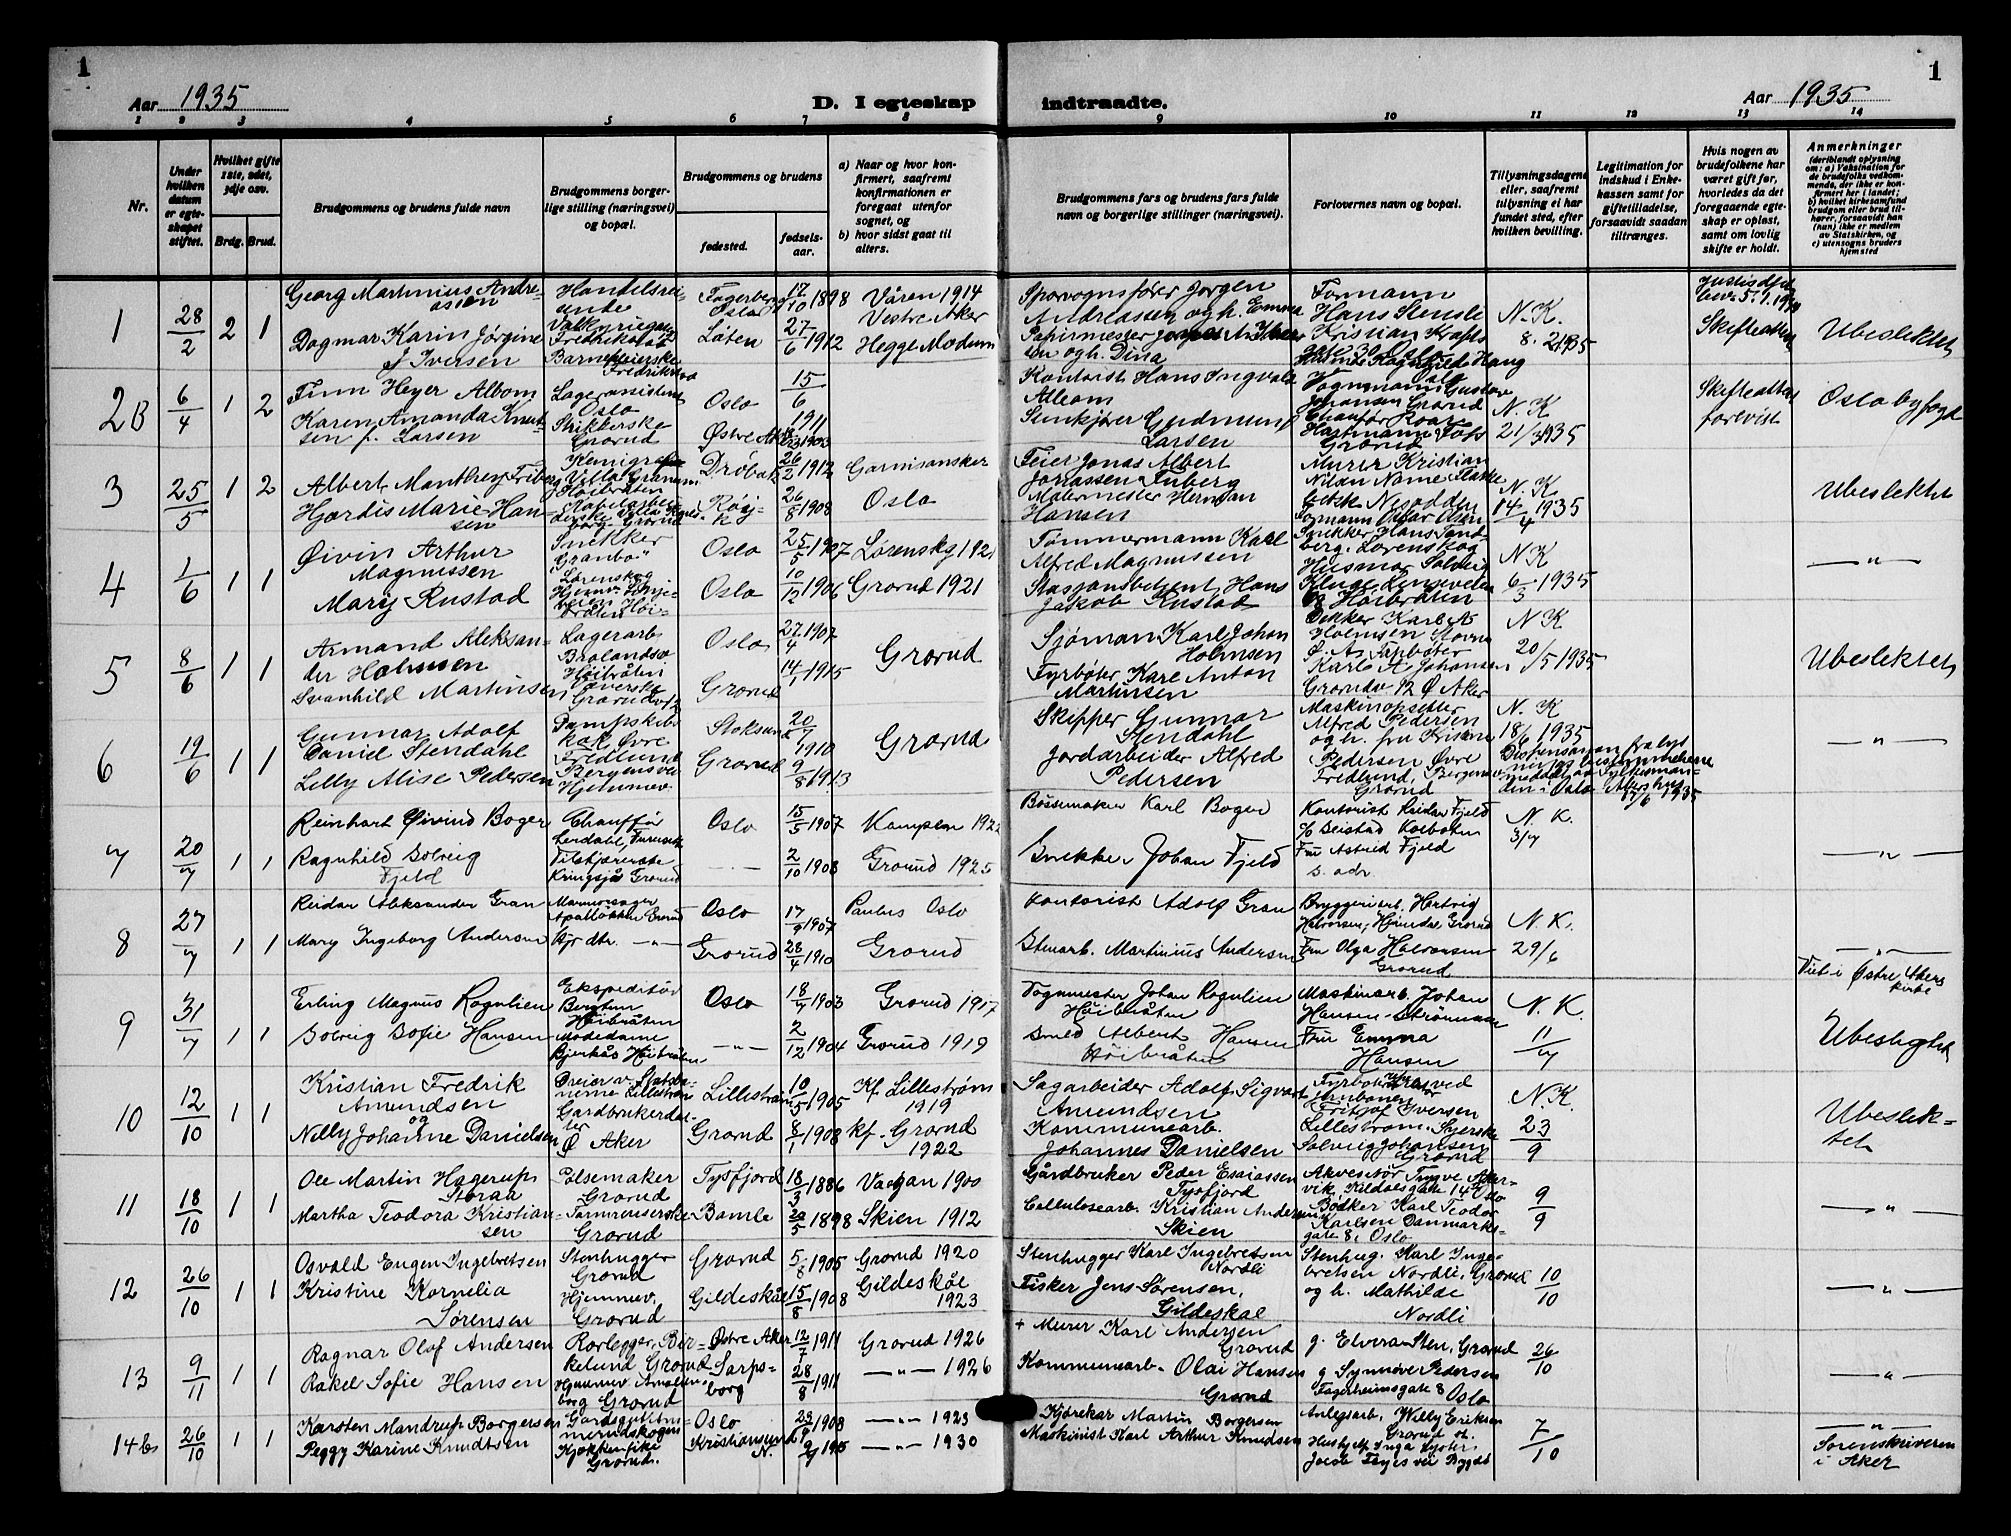 1
Aar 1935
D. I egteskap
indtraadte.
Aar 1935
1
1 2 3 4 5 6 7 8 9 10 11 12 13 14
Nr.
Under hvilken datum er egteskapet stiftet.
Hvilket gifte 1ste, 2det, 3dje osv.
Brdg. Brud.
Brudgommens og brudens fulde navn
Brudgommens borgerlige stilling (næringsvei) og bopæl.
Brudgommens og brudens
fødested.
fødselsaar.
a) Naar og hvor konfirmert, saafremt konfirmationen er foregaat utenfor sognet, og
b) hvor sidst gaat til alters.
Brudgommens fars og brudens fars fulde navn og borgerlige stillinger (næringsvei).
Forlovernes navn og bopæl.
Tillysningsdagene eller, saafremt tillysning ei har fundet sted, efter hvilken bevilling.
Legitimation for indskud i Enkekassen samt for giftetilladelse, forsaavidt saadan tiltrænges.
Hvis nogen av brudefolkene har været gift før, hvorledes da det foregaaende egteskap er opløst, samt om lovlig skifte er holdt.
Anmerkninger
(deriblandt oplysning om: a) Vaksination for de brudefolks vedkommende, der ikke er konfirmert her i landet; b) hvilket kirkesamfund brudgom eller brud tilhører, forsaavidt han (hun) ikke er medlem av Statskirken, og c) utensogns bruders hjemsted
1
28/2
2 1
Georg Martinius Andreasen
Dagmar Karin Jørgine
f Iversen
Handelsreisende
Fredrikstad
Fagerberg Oslo
Løten
17/10 1898
27/6 1912
Våren 1914
Vestre Aker
Hegge Modum
Sporvognsfører Jørgen
Andreassen og h. Emma
og h. Dina
Formann
Hans Stensli
N.K.
8. 2 1935
Skifteattest
Ubeslektet
2B
6/4
1 2
Finn Heyer Albom
Karen Amanda Knutsen f. Larsen
Lagerassistent
Oslo
Strikkerske
Grorud
Oslo
Østre Aker
15/6 1911
1903
Kontorist Hans Ingvald
Albom
Stenkjører Gudmund
Larsen
Vognmann Gustav
Johansen Grorud
Grorud
N.K
21/3 1935
Skifteattest
forevist
Oslo byfogd
3
25/5
1 2
Albert Manthey Friberg
Hjørdis Marie Hansen
Drøbak
26/2 1912
26/8 1908
Garnisonskir
Oslo
Feier Jonas Albert
Malermester Herman
Hansen
Murer Kristian
N.K
14/4 1935
Ubeslektet
4
1/6
1 1
Øivin Arthur
Magnussen
Mary Rustad
Snekker
"Granbo"
Lørenskog
Oslo
Oslo
25/5 1907
10/12 1906
Lørenskg 1921
Grorud 1921
Tømmermann Karl
Alfred Magnussen
Stasjonsbetjent Hans
Jakob Rustad
Snekker Hans Sandberg. Lørenskog
N K
6/3 1935
— " —
5
8/6
1 1
Armand Aleksander Holmsen
Svanhild Martinsen
Lagerarb
Høibråten
Oslo
Grorud
27/4 1907
14/1 1915
Grorud
Sjøman Karl Johan
Holmsen
Fyrbøter Karl Anton
Martinsen
Dekker Karl A
Holmsen Stovner
Ø. A. Fyrbøter
Karl A Johansen
Grorudv 12 Ø Aker
N K
20/5 1935
Ubeslektet
6
19/6
1 1
Gunnar Adolf
Daniel Stendahl
Lilly Alise Pedersen
kok Øvre
Fredlund
Bergensvei
Hjemmev.
Stoksund
Grorud
20/7 1910
9/8 1913
Grorud
Skipper Gunnar
Stendahl
Jordarbeider Alfred
Pedersen
Maskinopsetter
Alfred Pedersen
og h. fru Kristine
Pedersen Øvre
Fredlund, Bergensv
Grorud
N. K
18/6 1935
Dispensasjon fra lysningsbestemmelsene
meddelt av Fylkesmanden i Oslo Akershus
17/6 1935
— " —
7
20/7
1 1
Reinhart Øivind Boger
Ragnhild Solveig
Fjeld
Chauffør
Kringsjå Grorud
Oslo
— " —
15/5 1907
2/10 1903
Kampen 1922
Grorud 1925
Bøssemaker Karl Boger
Snekker Johan Fjeld
Kontorist Reidar Fjeld
c/o Beistad Kolbotn
Fru Astrid Fjeld
s. adr.
N. K.
3/7
— " —
8
27/7
1 1
Reidar Aleksander Gran
Mary Ingeborg Andersen
Apalløkken Grorud
Hjv dtr. — " —
Oslo
Grorud
17/9 1907
28/4 1910
Paulus Oslo
Grorud
Kontorist Adolf Gran
Stenarb. Martinius Andersen
Bryggeriarb. Hartvig
Halvorsen, Grorud
Fru Olga Halvorsen
Grorud
N. K.
29/6
— " —
Viet i Østre Akers
kirke
9
31/7
1 1
Erling Magnus Rognlien
Solveig Sofie Hansen
Ekspeditør
Høibråten
Modedame
Bjerkås Høibråten
Oslo
— " —
18/7 1903
2/12 1904
Grorud 1917
Grorud 1919
Vognmester Johan Rognlien
Høibråten
Smed Albert Hansen
Høibråten
Maskinarb. Johan
Hansen - Strømmen
Fru Emma
Hansen
N. K.
11/7
Ubeslegtet
10
12/10
1 1
Kristian Fredrik
Amundsen
og
Nelly Johanne Danielsen
Dreier v. Statsbanerne Lillestrøm
Gardbrukerdatter
Ø Aker
Lillestrøm
Grorud
10/5 1905
8/1 1908
Kf. Lillestrøm
1919
kf. Grorud
1922
Sagarbeider Adolf Sigvart
Amundsen
Kommunearb.
Johannes Danielsen
Fyrbøter ved
Jernbanen
Fritjof Iversen
Lillestrøm. Syerske
Solveig Johansen
Grorud
N.K.
23/9
Ubeslektet
11
18/10
1 1
Ole Martin Hagerup
Storaa
Martha Teodora Kristiansen
Pølsemaker
Grorud
Tarmrenserske
Grorud
Tysfjord
Bamle
18/3 1886
20/5 1898
Vaagan 1900
Skien 1912
Gårdbruker Peder Esaiassen
Tysfjord
Cellulosearb. Kristian Andersen
Skien
Akvesitør Trygve Akervik, Kildalsgate 14 Oslo
Bødker Karl Teodor
Karlsen Danmarksgate 8, Oslo
9/9
— " —
12
26/10
1 1
Osvald Eugen Ingebretsen
Kristine Kornelia
Sørensen
Stenhugger
Grorud
Hjemmev.
Grorud
Grorud
Gildeskål
5/8 1905
15/8 1908
Grorud 1920
Gildeskål
1923
Stenhugger Karl Ingebretsen
Nordli
Fisker Jens Sørensen,
Gildeskål
Stenhug. Karl Ingebretsen Nordli, Grorud
og h. Mathilde
Nordli
10/10
— " —
13
9/11
1 1
Ragnar Olaf Andersen
Rakel Sofie Hansen
Rørlegger, Birkelund Grorud
Grorud
Østre Aker
Sarpsborg
12/7 1911
28/8 1911
Grorud 1926
— " — 1926
+ Murer Karl Andersen
Grorud
Kommunearb. Olai Hansen
Grorud
g. Elvera Sten, Grorud
g Synnøve Pedersen
Fagerheimsgate 8 Oslo
26/10
— " —
14b
26/10
1 1
Karsten Mandrup Borgersen
Peggy Karine Knudtsen
Kjøkkenpike
Grorud.
Oslo
Kristiansund
N.
1908
1915
— " — 1923
— " — 1930
Kjørekar Martin Borgersen
Maskinist Karl Arthur Knudsen
Anlegsarb. Willy Eriksen
7/10
— " —
Sorenskriveren
i Aker